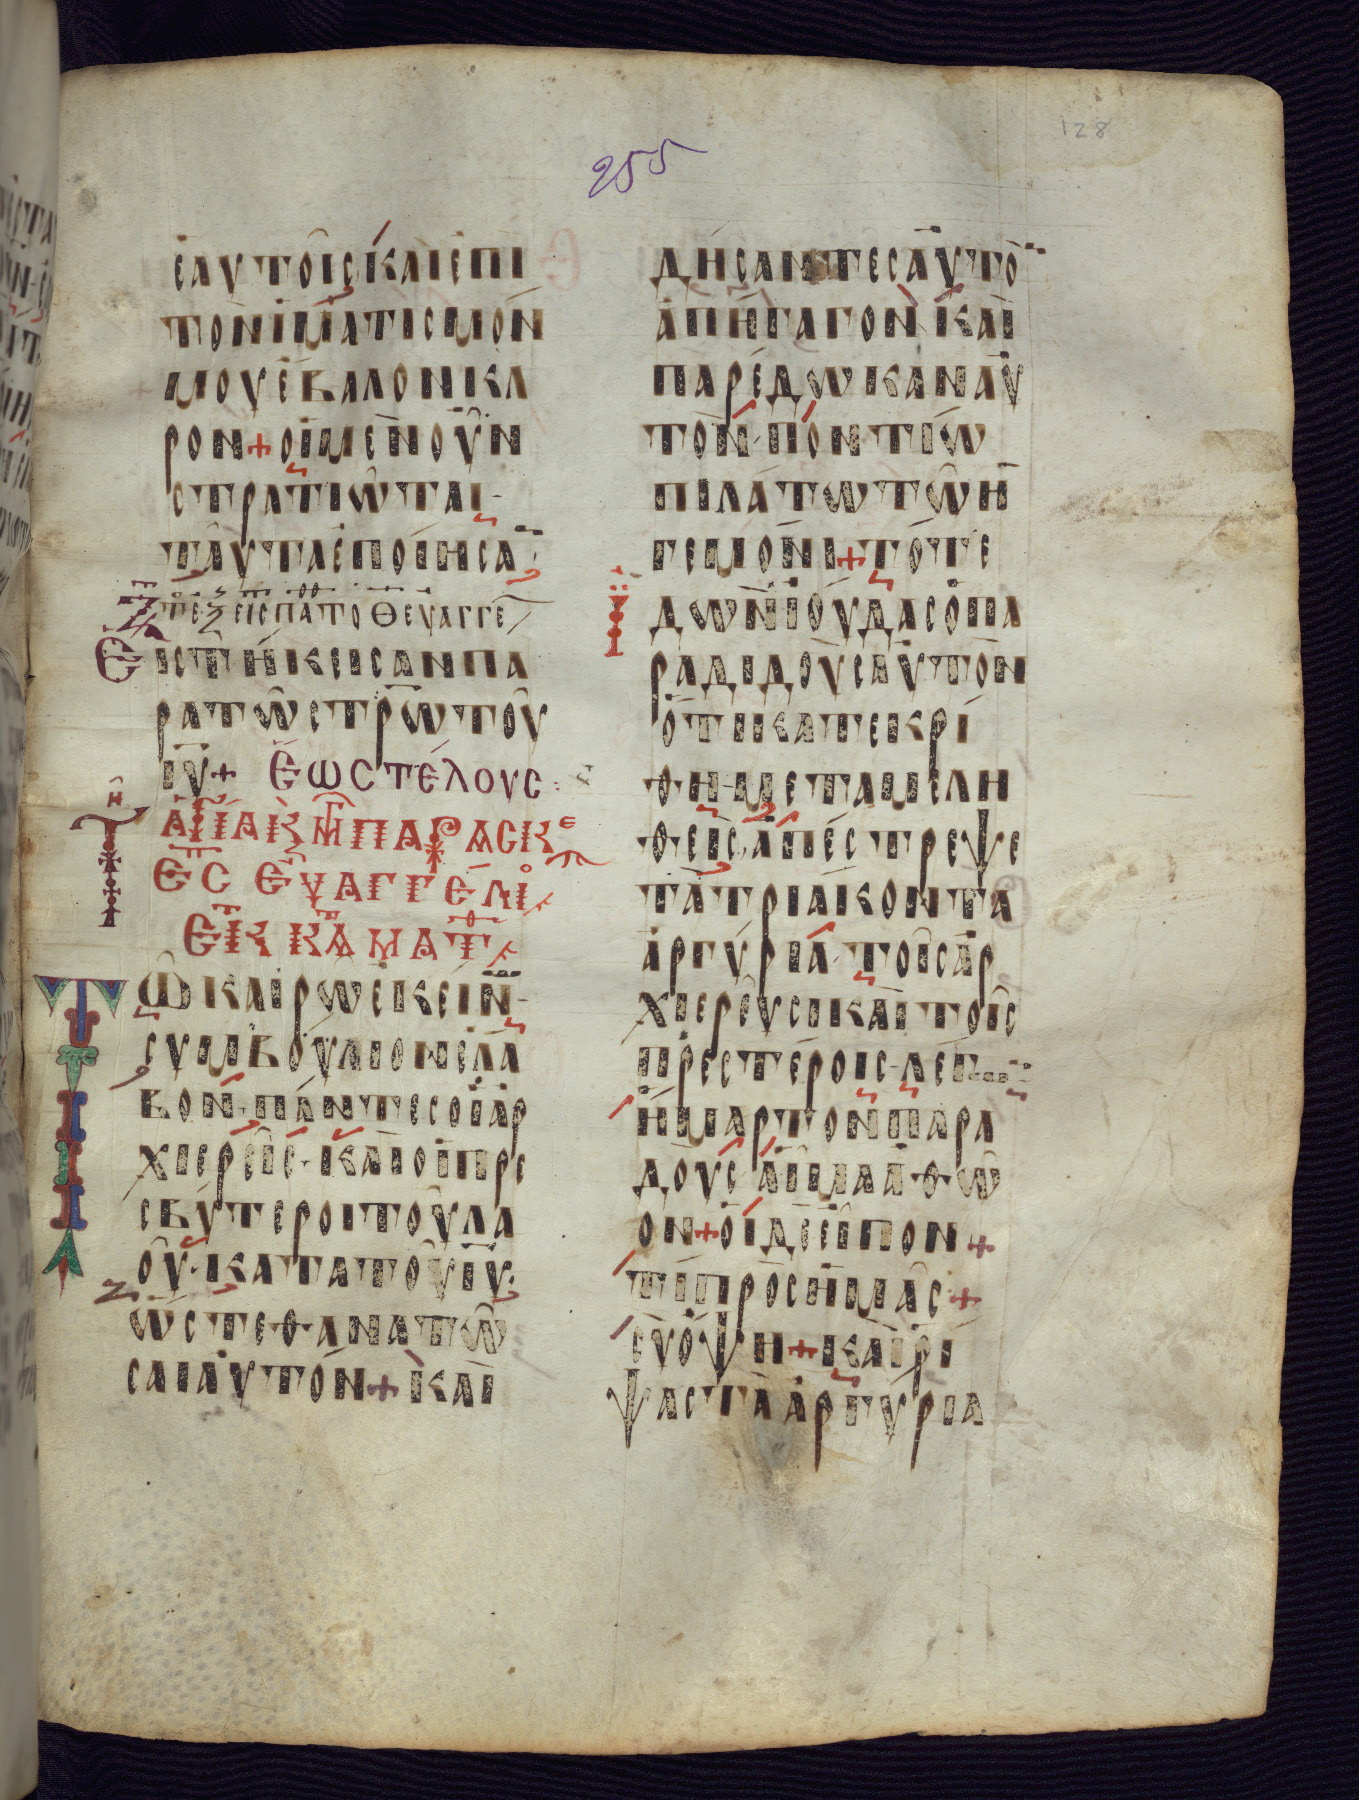 128
255
ἑαυτοῖς καὶ ἐπὶ
τὸν ἱματισμόν
μου ἔβαλον κλ
ρον + οἱ μὲν οὖν
στρατιῶται
ταῦτα ἐποίησα
εἱστήκεισαν πα
ρὰ τῶ στρω τοῦ
ιυ + ἕως τέλους
ευαγγέλι
ἐκ κ ματθ
Τῶ καιρῶ ἐκείν
συμβούλιον ἔλα
βον πάντες οἱ ἀρ
χιερεῖς καὶ οἱ πρε
σβύτεροι τοῦ λα
οῦ κατὰ τοῦ ιυ
ὥστε θανατῶ
σαι αὐτόν + καὶ
δήσαντες αὐτὸ
ἀπήγαγον καὶ
παρέδωκαν αὐ
τὸν ποντίω
πιλάτω τῶ ἡ
γεμόνι + τότε
ἰδὼν ἰούδας ὁ πα
ραδιδοὺς αὐτὸν
ὅτι κατεκρί
θη μεταμελη
θεὶς ἀπέστρεψε
τὰ τριάκοντα
ἀργύρια τοῖς ἀρ
χιερεῦσι καὶ τοῖς
πρεστέροις λέγ
ἥμαρτον παρα
δοὺς αἷμα ἀθῶ
ον + οἱ δὲ εἶπον +
τί πρὸς ἡμᾶς +
σὺ ὄψη + καὶ ῥί
ψας τὰ ἀργύρια